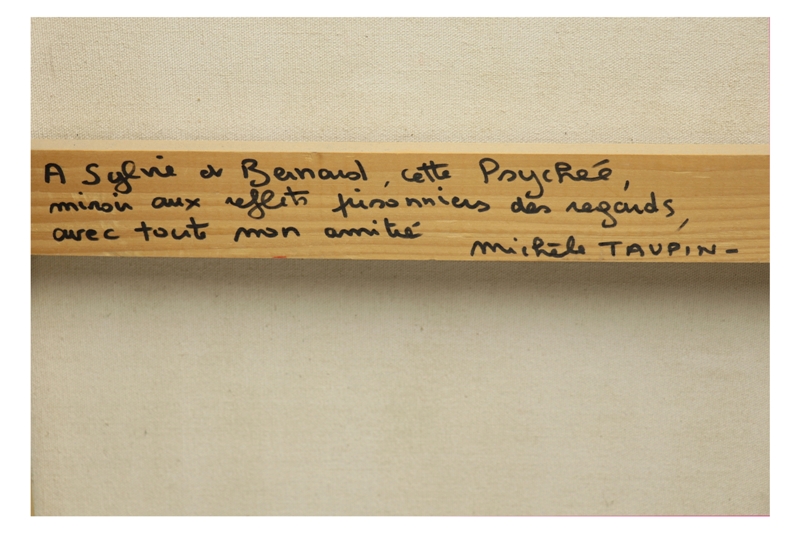 A Sylvie et Bernard, cette Psychéé,
miroir aux reflets prisonniers des regards,
avec toute mon amitié
Michèle TAUPIN-